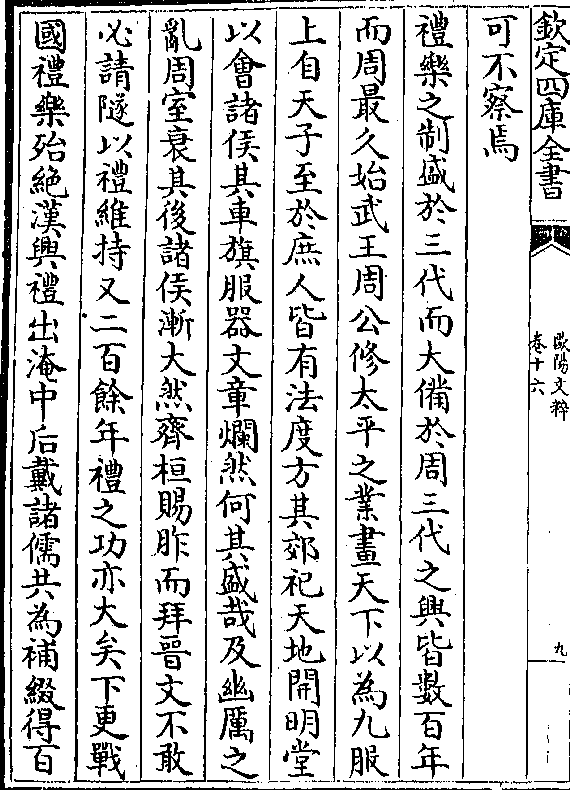 欽定四庫全書
歐陽文粹
卷十六
九
可不察焉
禮樂之制盛於三代而大備於周三代之興皆數百年
而周最久始武王周公修太平之業畫天下以為九服
上自天子至於庶人皆有法度方其郊祀天地開明堂
以會諸侯其車旗服器文章爛然何其盛哉及幽厲之
亂周室衰其後諸侯漸大然齊桓賜胙而拜晉文不敢
必請隧以禮維持又二百餘年禮之功亦大矣下更戰
國禮樂殆絶漢興禮出淹中后戴諸儒共為補綴得百